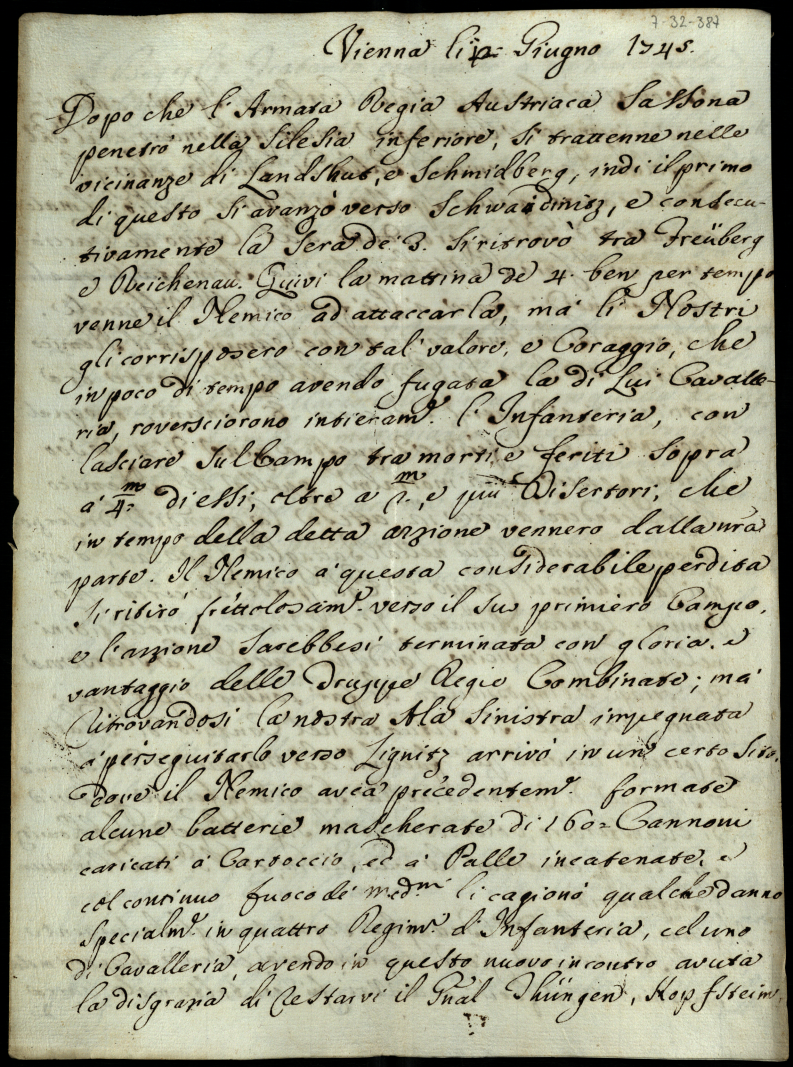 7-32-387
Vienna li 12 Giugno 1745.
Dopo che l'Armata Regia Austriaca Sassona
penetrò nella Silesia inferiore, si trattenne nelle
vicinanze di Landshut, e Schmidberg, indi il primo
di questo si avanzò verso Schwaidnitz, e consecu-
tivamente la sera de' 3. si ritrovò tra Freüberg
e Reichenau. Quivi la mattina de 4. ben per tempo
venne il Nemico ad attaccarla, mà li Nostri
gli corrisposero con tal' valore, e Coraggio, che
in poco di tempo avendo fugata la di Lui Cavalle-
ria, roversciorono intieram.e l'Infanteria, con
lasciare sul Campo tra morti, e feriti sopra
a' 4m di essi, oltre a 2m, e più Disertori, che
in tempo della detta azzione vennero dalla nra
parte. Il Nemico à questa considerabile perdita
si ritirò frettolosam.e verso il suo primiero Campo,
e l'azzione sarebbesi terminata con gloria, e
vantaggio delle Truppe Regie Combinate; mà
ritrovandosi la nostra Ala Sinistra impegnata
à perseguitarlo verso Lignitz arrivò in un certo sito,
dove il Nemico avea precedentem.e formate
alcune batterie mascherate di 160= Cannoni
caricati à Cartoccio, ed à Palle incatenate, e
col continuo fuoco de' med.mi li cagionò qualche danno
specialm.e in quattro Regim.i d'Infanteria, ed uno
di Cavalleria, avendo in questo nuovo incontro avuta
la disgrazia di restarvi il Gñal Thüngen, Hopfstein,